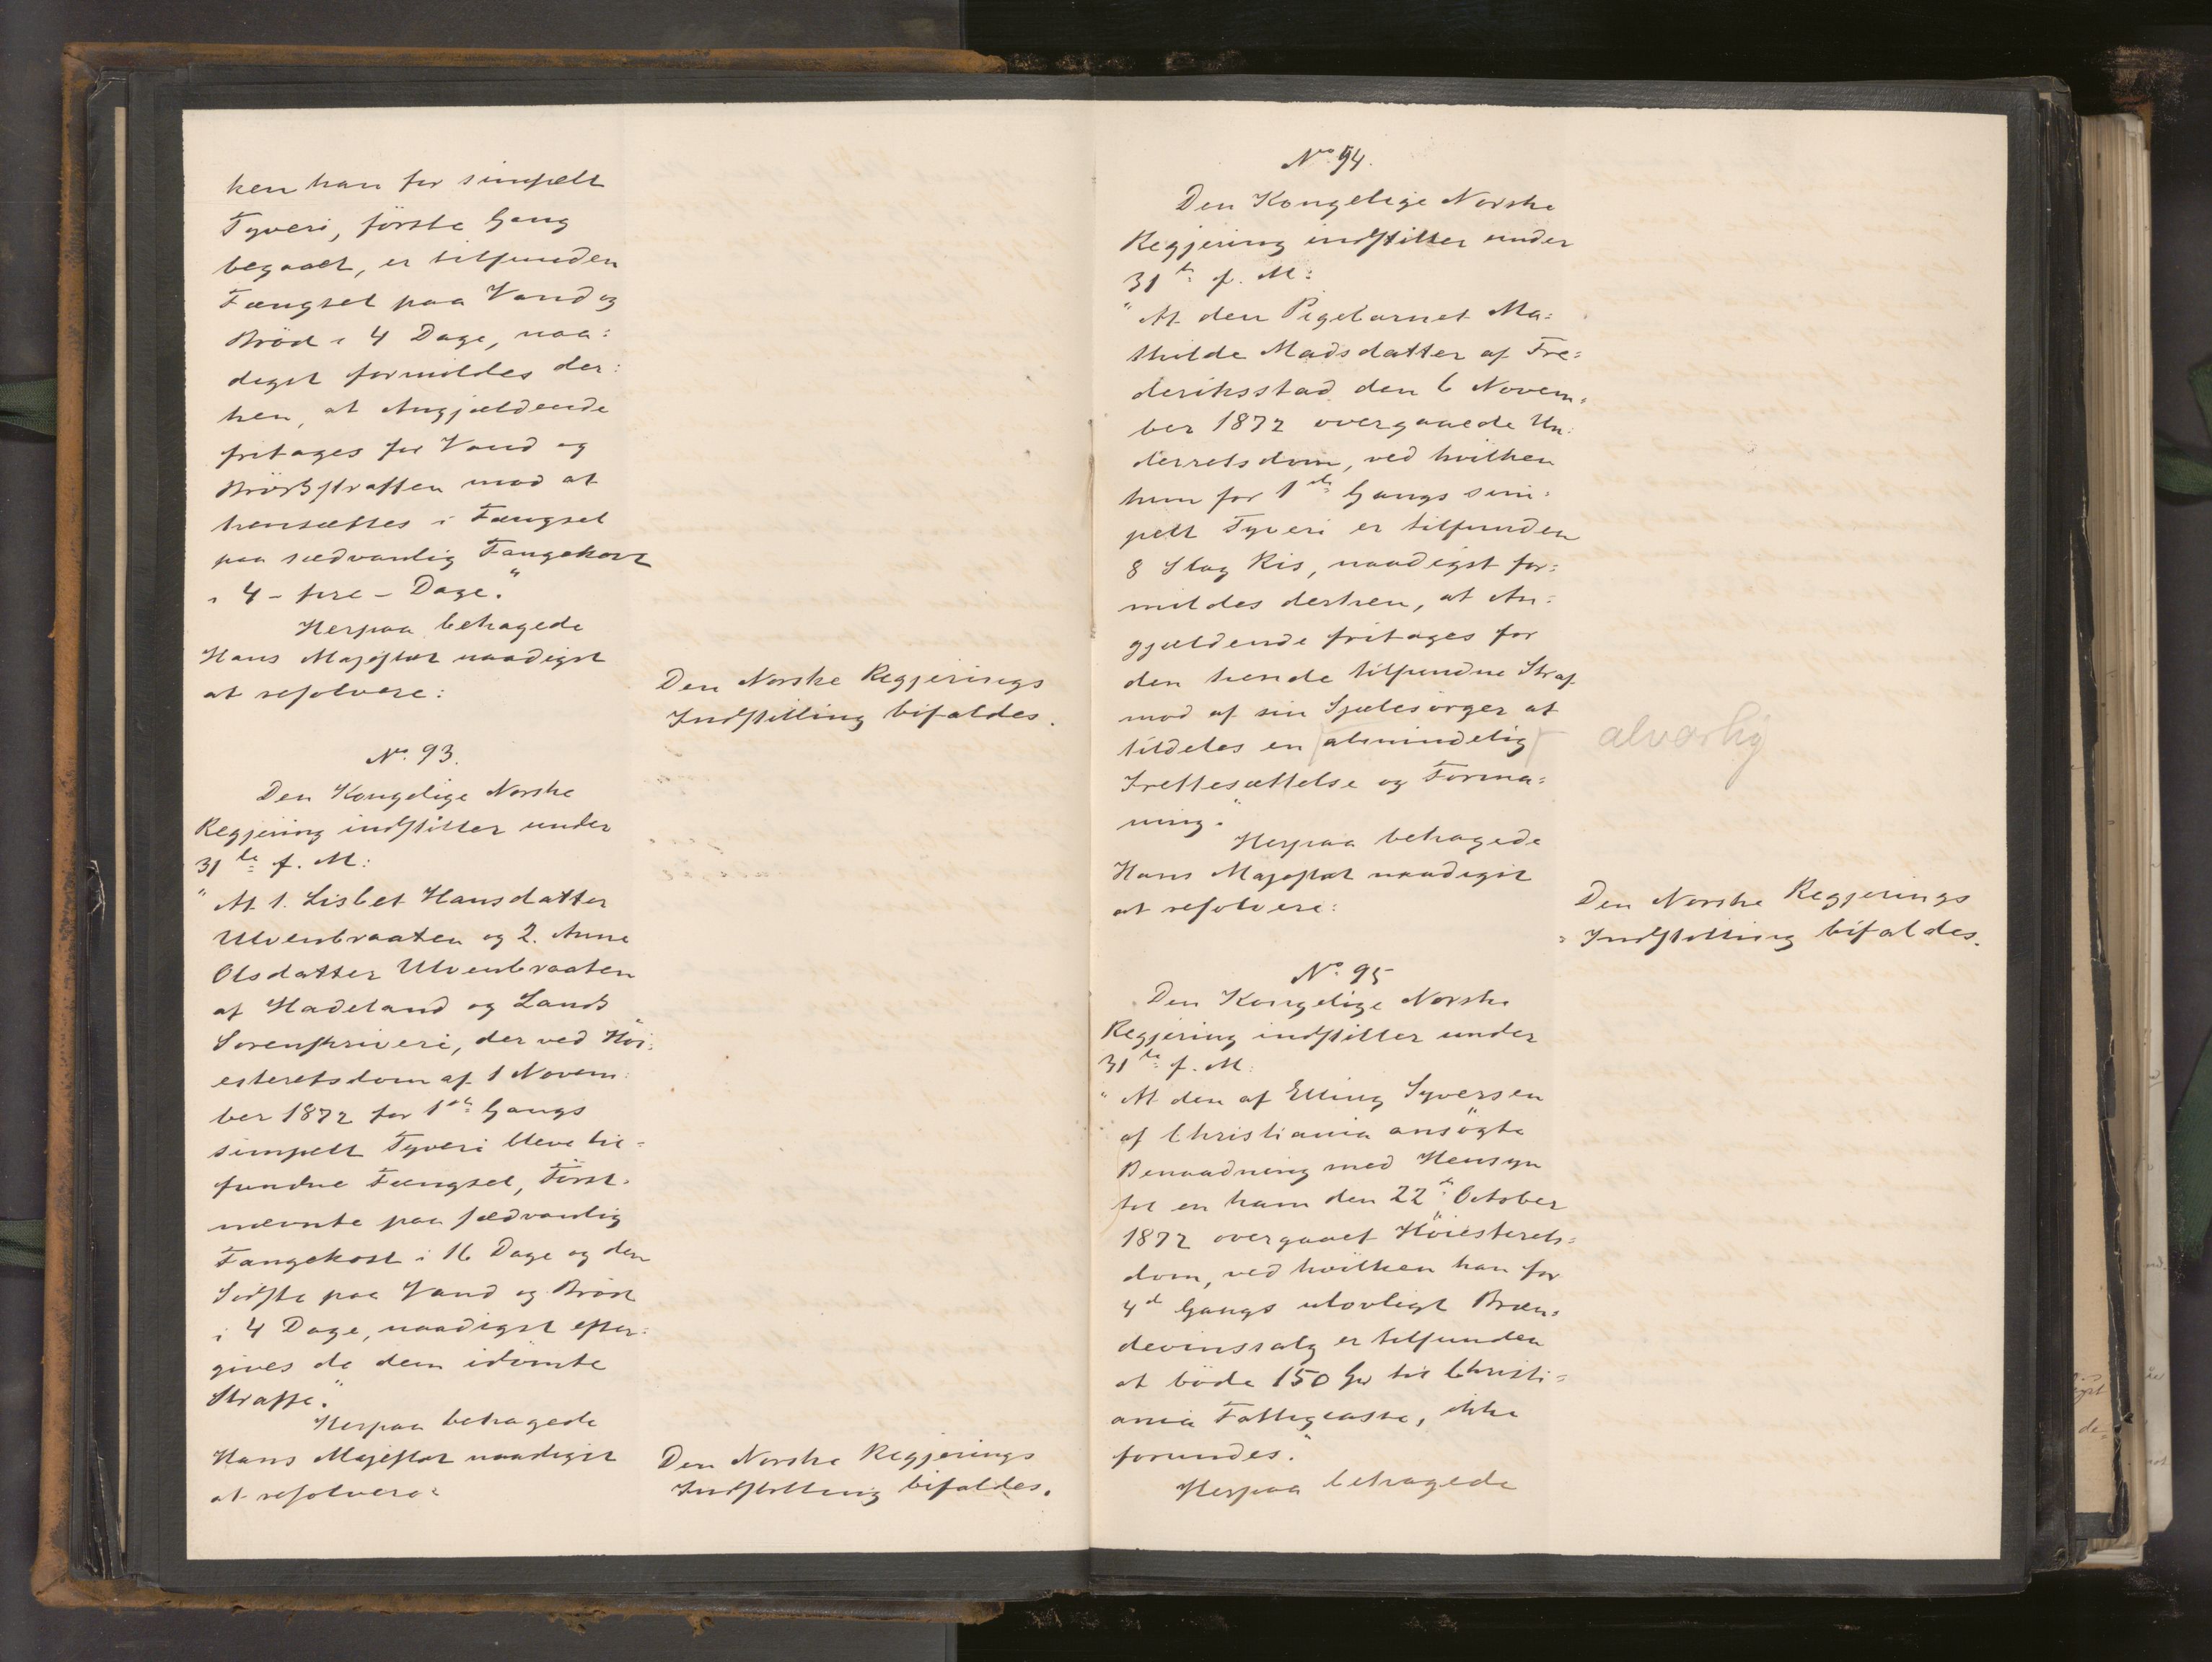 ken han for simpelt
Tyveri, förste Gang
begaaet, er tilfunden
Fængsel paa Vand og
Bröd i 4 Dage, naa=
digst formildes der=
hen, at Angjældende
fritages for Vand og
Brödstraffen mod at
hensættes i Fængsel
paa sædvanlig Fangekost
i 4 - fire - Dage."
Herpaa behagede
Hans Majestæt naadigst
at resolvere:
Den Norske Regjerings
Indstilling bifaldes.
No. 93.
Den Kongelige Norske
Regjering indstiller under
31te f. M:
"At 1. Lisbet Hansdatter
Ulvenbraaten og 2. Anne
Olsdatter Ulvenbraaten
af Hadeland og Lands
Sorenskriveri, der ved Höi=
esteretsdom af 1 Novem=
ber 1872 for 1ste Gangs
simpelt Tyveri bleve til=
fundne Fængsel, Först=
nævnte paa sædvanlig
Fangekost i 16 Dage og den
Sidste paa Vand og Bröd
i 4 Dage, naadigst efter=
gives de dem idömte
Straffe."
Herpaa behagede
Hans Majestæt naadigst
at resolvere:
Den Norske Regjerings
Indstilling bifaldes.
No. 94.
Den Kongelige Norske
Regjering indstiller under
31te f. M:
"At den Pigebarnet Ma=
thilde Madsdatter af Fre=
deriksstad den 6 Novem=
ber 1872 overgaaede Un=
derretsdom, ved hvilken
hun for 1ste Gangs sim=
pelt Tyveri er tilfunden
8 Slag Ris, naadigst for=
mildes derhen, at An=
gjældende fritages for
den hende tilfundne Straf
mod af sin Sjælesörger at
tildeles en (almindelig)
alvorlig
Irettesættelse og Forma=
ning."
Herpaa behagede
Hans Majestæt naadigst
at resolvere:
Den Norske Regjerings
Indstilling bifaldes.
No. 95
Den Kongelige Norske
Regjering indstiller under
31te f. M:
"At den af Elling Syversen
af Christiania ansögte
Benaadning med Hensyn
til en ham den 22de October
1872 overgaaet Höiesterets=
dom, ved hvilken han for
4de Gangs ulovligt Bræn=
devinssalg er tilfunden
at böde 150 Spd til Christi=
ania Fattigcasse, ikke
forundes."
Herpaa behagede